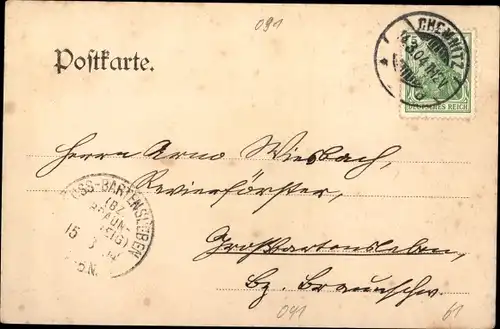 091
Postkarte.
CHEMNITZ
5
3.04
DEUTSCHES REICH
Herrn Arno Wiesbach,
Revierförster,
GROSS-BARTENSLEBEN
(BZ.
BRAUN-
SCHWEIG)
15
3
04
Großbartensleben,
bz. Braunschw.
091
61